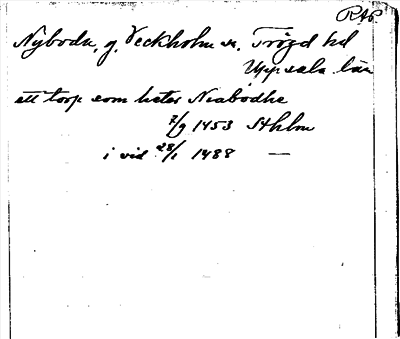 RAP
Nyboda, g. Veckholm sn. Trögd hd
Uppsala län
ett torp som heter Niabodha
7/9 1453 Sthlm
i vid 28/1 1488 —